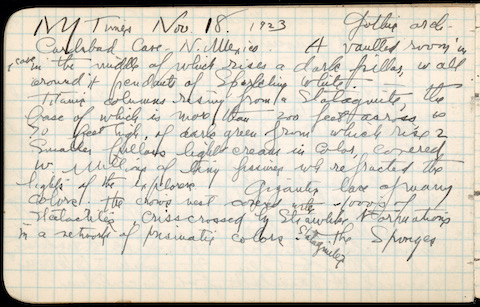 NY Times Nov 18. 1923 Gothic arch-
Carlsbad Cave - N. Mexico. A vaulted room in
cave in the middle of which rises a dark pillar, & all
around it pendants of Sparkling white. —
Titanic columns rising from a Stalagmite, the
base of which is more than 200 feet across is
70 feet high, of dark green from which rise 2
Smaller pillows light cream in color, covered
w. Millions of tiny fissures wh refracted the
lights of the explorers Gigantic of many
colors. The crows nest covered with 1000s of
Stalactites, crisscrossed by Formations
in a network of prismatic colors - The Sponges
Stalagmites